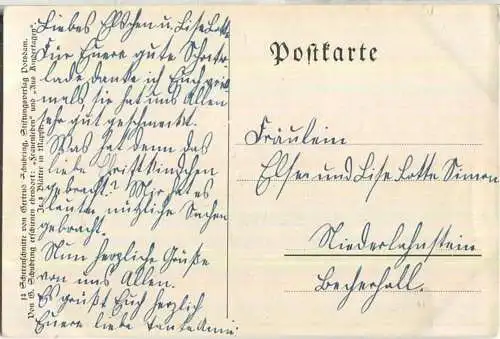 Liebes Elschen und Liselotte
Für Euere gute Schoko-
lade danke ich Euch viel-
mals, sie hat uns Allen
sehr gut geschmeckt.
Was hat denn das
liebe Christkindchen
gebracht? Mir hat es
lauter nützliche Sachen
gebracht.
Nun herzliche Grüße
von uns Allen.
Es grüßt Euch herzlich
Euere liebe Tante Anni.
12 Scherenschnitte von Gertrud Schubring, Stiftungsverlag Potsdam.
Von G. Schubring erschienen ebendort: „Frauenleben" und „Aus Kindertagen".
Je 8 Blätter in Mappe.
Postkarte
Fräulein
Else und Lise Lotte Simon
Niederlahnstein
Becherhöll.